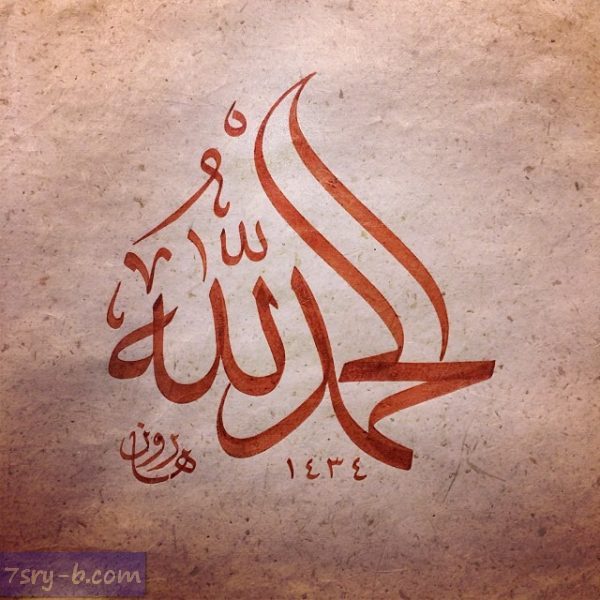 الحمد لله
١٤٣٤
هارون
7sry-b.com